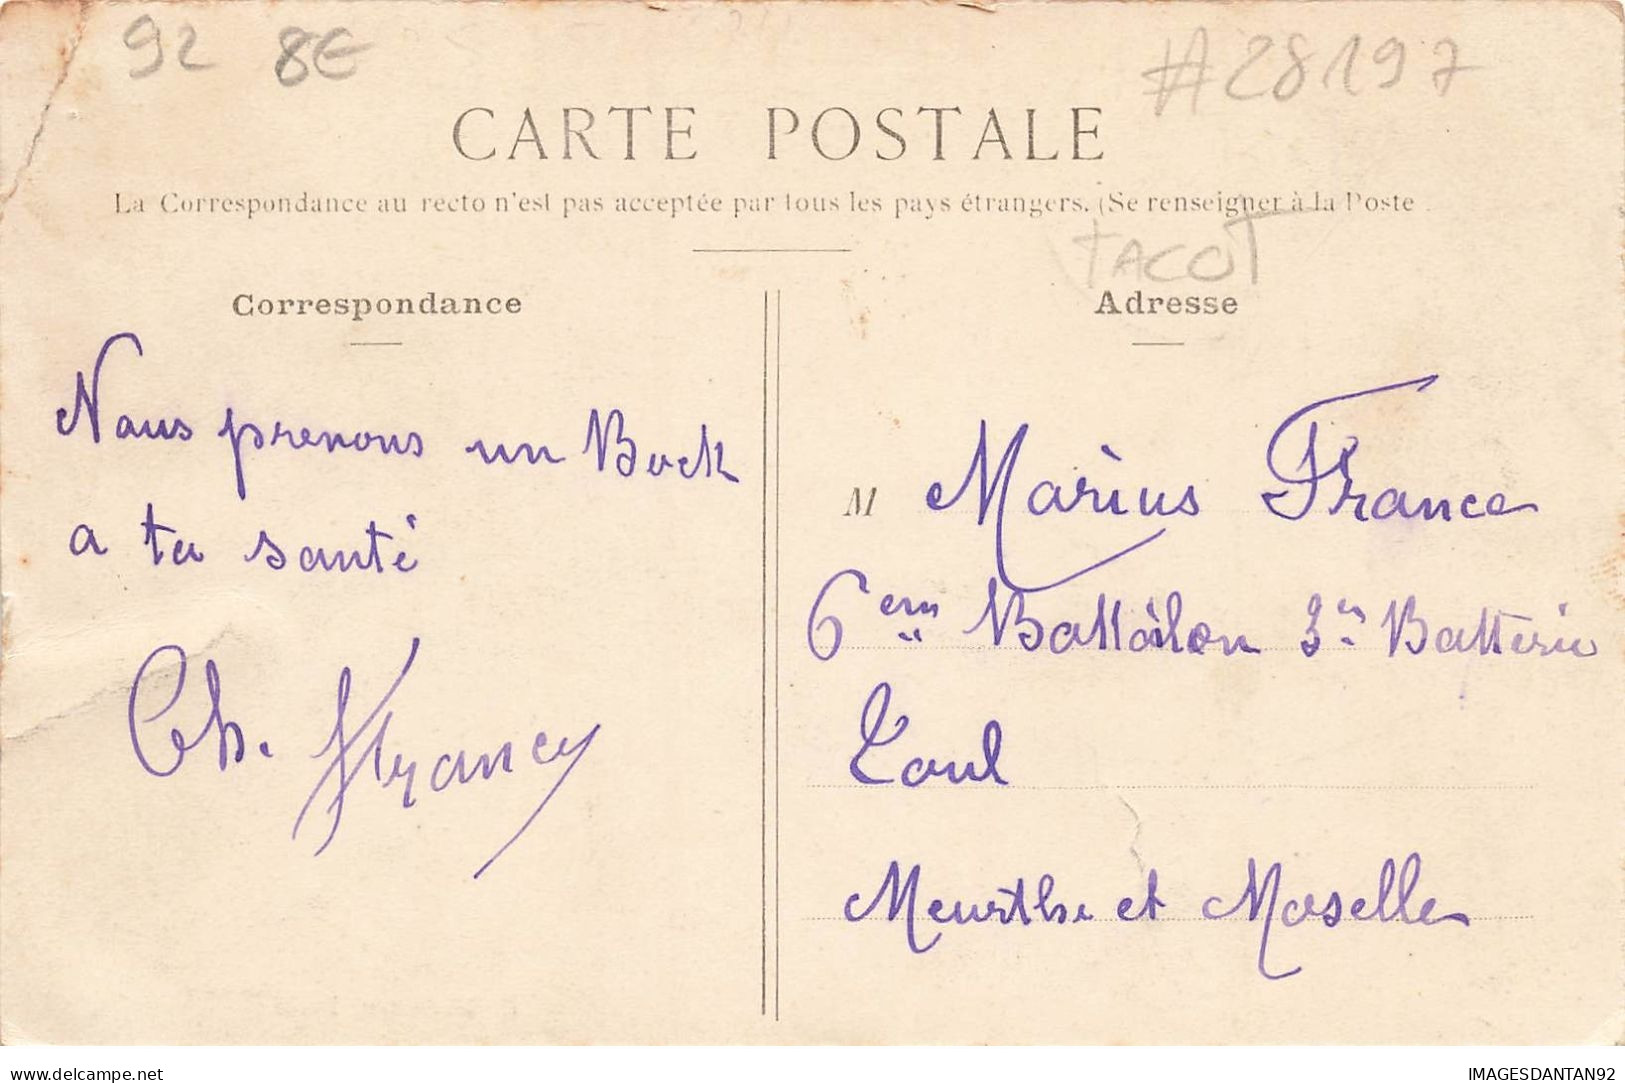 92 8E
#28197
CARTE POSTALE
La Correspondance au recto n'est pas acceptée par tous les pays étrangers. (Se renseigner à la Poste
TACOT
Correspondance
Nous prenons un Bock
a ta santé
Ch. Francy
Adresse
M Marius France
6em Battàlon 3e Batterie
Toul
Meurthe et Moselle
delcampe.net
IMAGESDANTAN92